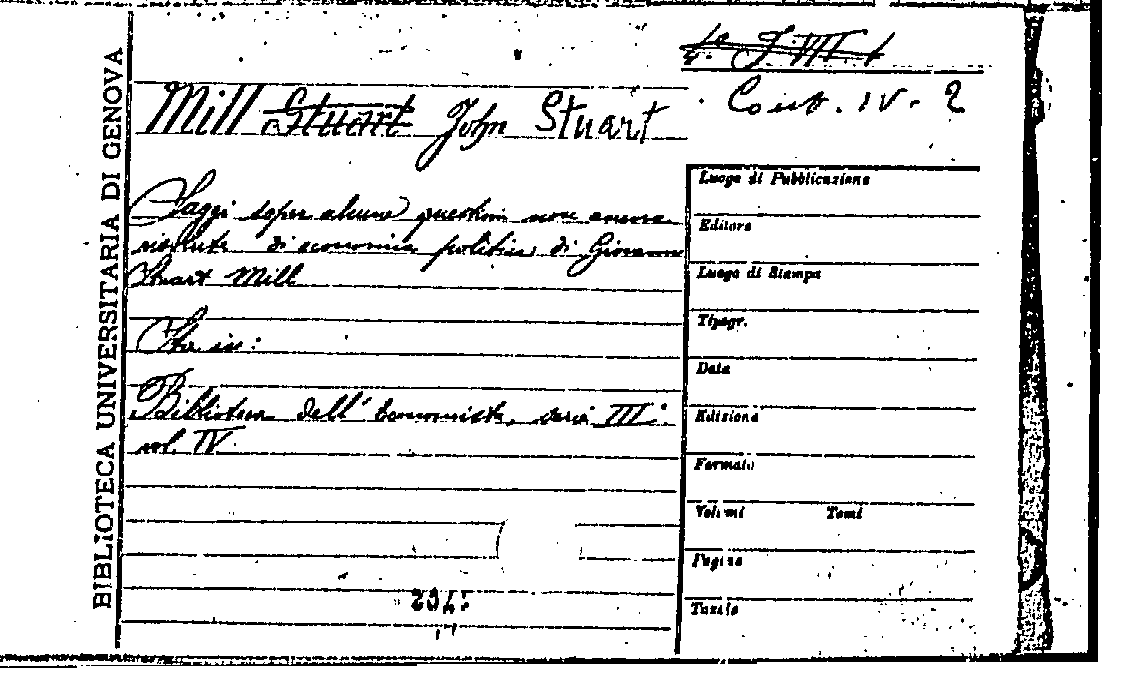 BIBLIOTECA UNIVERSITARIA DI GENOVA
4° J. VII. 1
Mill Stuart John Stuart
Cons. IV. 2
Saggi sopra alcune questioni non ancora
risolute di economia politica di Giovanni
Stuart Mill
Sta in:
Biblioteca dell'Economista, serie III:
vol. IV.
Luogo di Pubblicazione
Editore
Luogo di Stampa
Tipogr.
Data
Edizione
Formato
Volumi Tomi
Pagine
Tavole